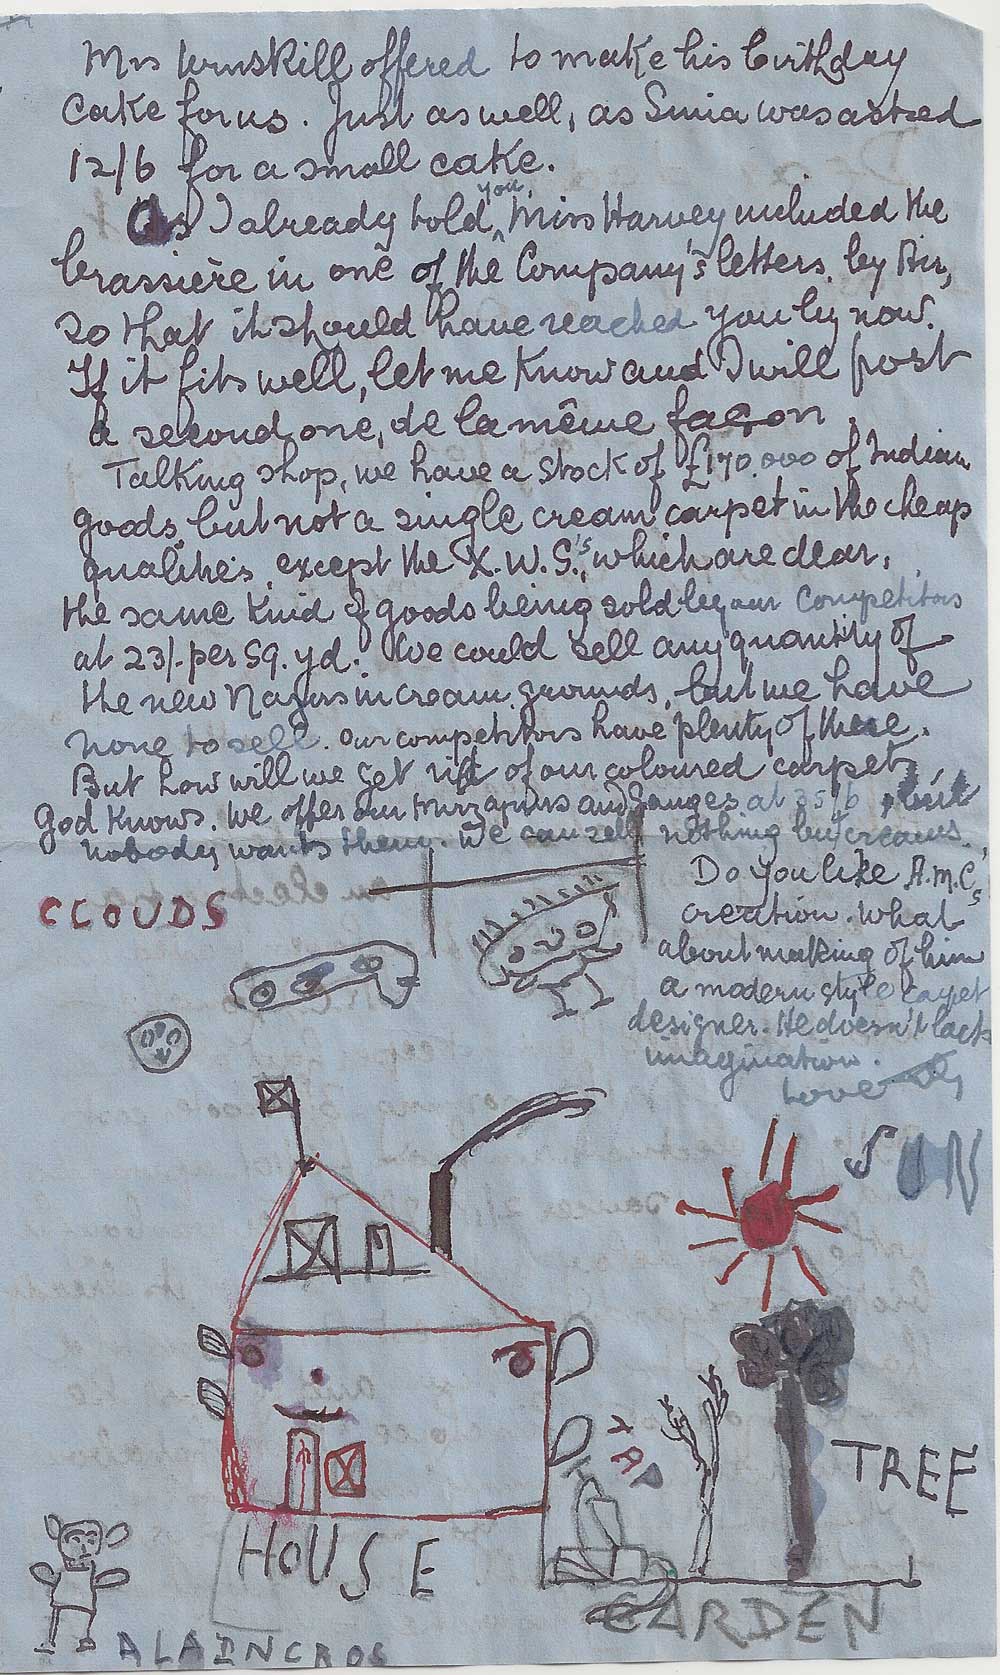 Mrs offered to make his birthday
cake for us. Just as well, as Simia was asked
12/6 for a small cake.
As I already told you, Miss Harvey included the
brassière in one of the Company's letters, by Air,
so that it should have reached you by now.
If it fits well, let me know and I will post
a second one, de la même façon.
Talking shop, we have a stock of £170.000 of Indian
goods, but not a single cream carpet in the cheap
qualities, except the X.W.S.'s, which are dear,
the same kind of goods being sold by our Competitors
at 23/- per sq. yd. We could sell any quantity of
the new in cream grounds, but we have
none to sell. Our competitors have plenty of these.
But how will we get rid of our coloured carpets,
God knows. We offer our Mirzapurs and Ganges at 35/6 but
nobody wants them. We can sell nothing but creams.
Do you like A.M.C's
creation. What
about making of him
a modern style carpet
designer. He doesn't lack
imagination.
Love
CLOUDS
SUN
TAP
TREE
HOUSE
GARDEN
ALAINCROS